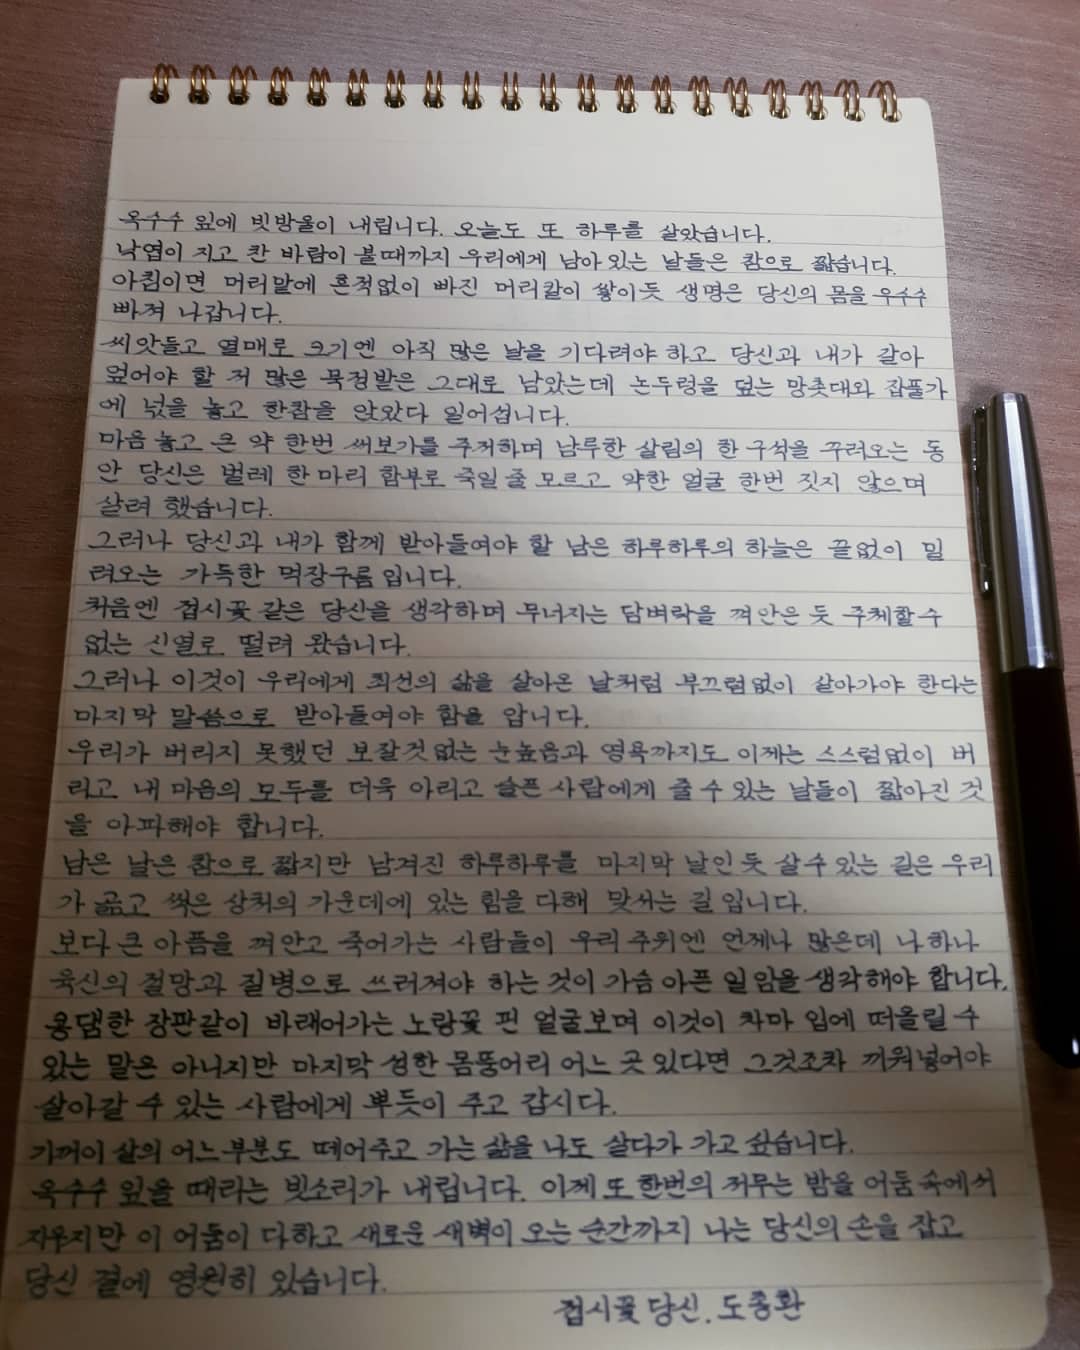 옥수수 잎에 빗방울이 내립니다. 오늘도 또 하루를 살았습니다.
낙엽이 지고 찬 바람이 불때까지 우리에게 남아있는 날들은 참으로 짧습니다.
아침이면 머리맡에 흔적없이 빠진 머리칼이 쌓이듯 생명은 당신의 몸을 우수수
빠져 나갑니다.
씨앗들고 열매로 크기엔 아직 많은 날을 기다려야 하고 당신과 내가 갈아
엎어야 할 저 많은 묵정밭은 그대로 남았는데 논두렁을 덮는 망촛대와 잡풀가
에 넋을 놓고 한참을 앉았다 일어섭니다.
마음 놓고 큰 약 한번 써보기를 주저하며 남루한 살림의 한 구석을 꾸려오는 동
안 당신은 벌레 한 마리 함부로 죽일 줄 모르고 약한 얼굴 한번 짓지 않으며
살려 했습니다.
그러나 당신과 내가 함께 받아들여야 할 남은 하루하루의 하늘은 끝없이 밀
려오는 가득한 먹장구름입니다.
처음엔 접시꽃 같은 당신을 생각하며 무너지는 담벼락을 껴안은 듯 주체할수
없는 신열로 떨려 왔습니다.
그러나 이것이 우리에게 최선의 삶을 살아온 날처럼 부끄럼없이 살아가야 한다는
마지막 말씀으로 받아들여야 함을 압니다.
우리가 버리지 못했던 보잘것없는 눈높음과 영욕까지도 이제는 스스럼없이 버
리고 내 마음의 모두를 더욱 아리고 슬픈 사람에게 줄 수 있는 날들이 짧아진 것
을 아파해야 합니다.
남은 날은 참으로 짧지만 남겨진 하루하루를 마지막 날인 듯 살수있는 길은 우리
가 곪고 썩은 상처의 가운데에 있는 힘을 다해 맞서는 길입니다.
보다 큰 아픔을 껴안고 죽어가는 사람들이 우리 주위엔 언제나 많은데 나 하나
육신의 절망과 질병으로 쓰러져야 하는 것이 가슴 아픈 일임을 생각해야 합니다.
콩댐한 장판같이 바래어가는 노랑꽃 핀 얼굴보며 이것이 차마 입에 떠올릴 수
있는 말은 아니지만 마지막 성한 몸뚱어리 어느 곳 있다면 그것조차 끼워넣어야
살아갈 수 있는 사람에게 뿌듯이 주고 갑시다.
기꺼이 살의 어느 부분도 떼어주고 가는 삶을 나도 살다가 가고 싶습니다.
옥수수 잎을 때리는 빗소리가 내립니다. 이제 또 한번의 저무는 밤을 어둠 속에서
지우지만 이 어둠이 다하고 새로운 새벽이 오는 순간까지 나는 당신의 손을 잡고
당신 곁에 영원히 있습니다.
접시꽃 당신. 도종환